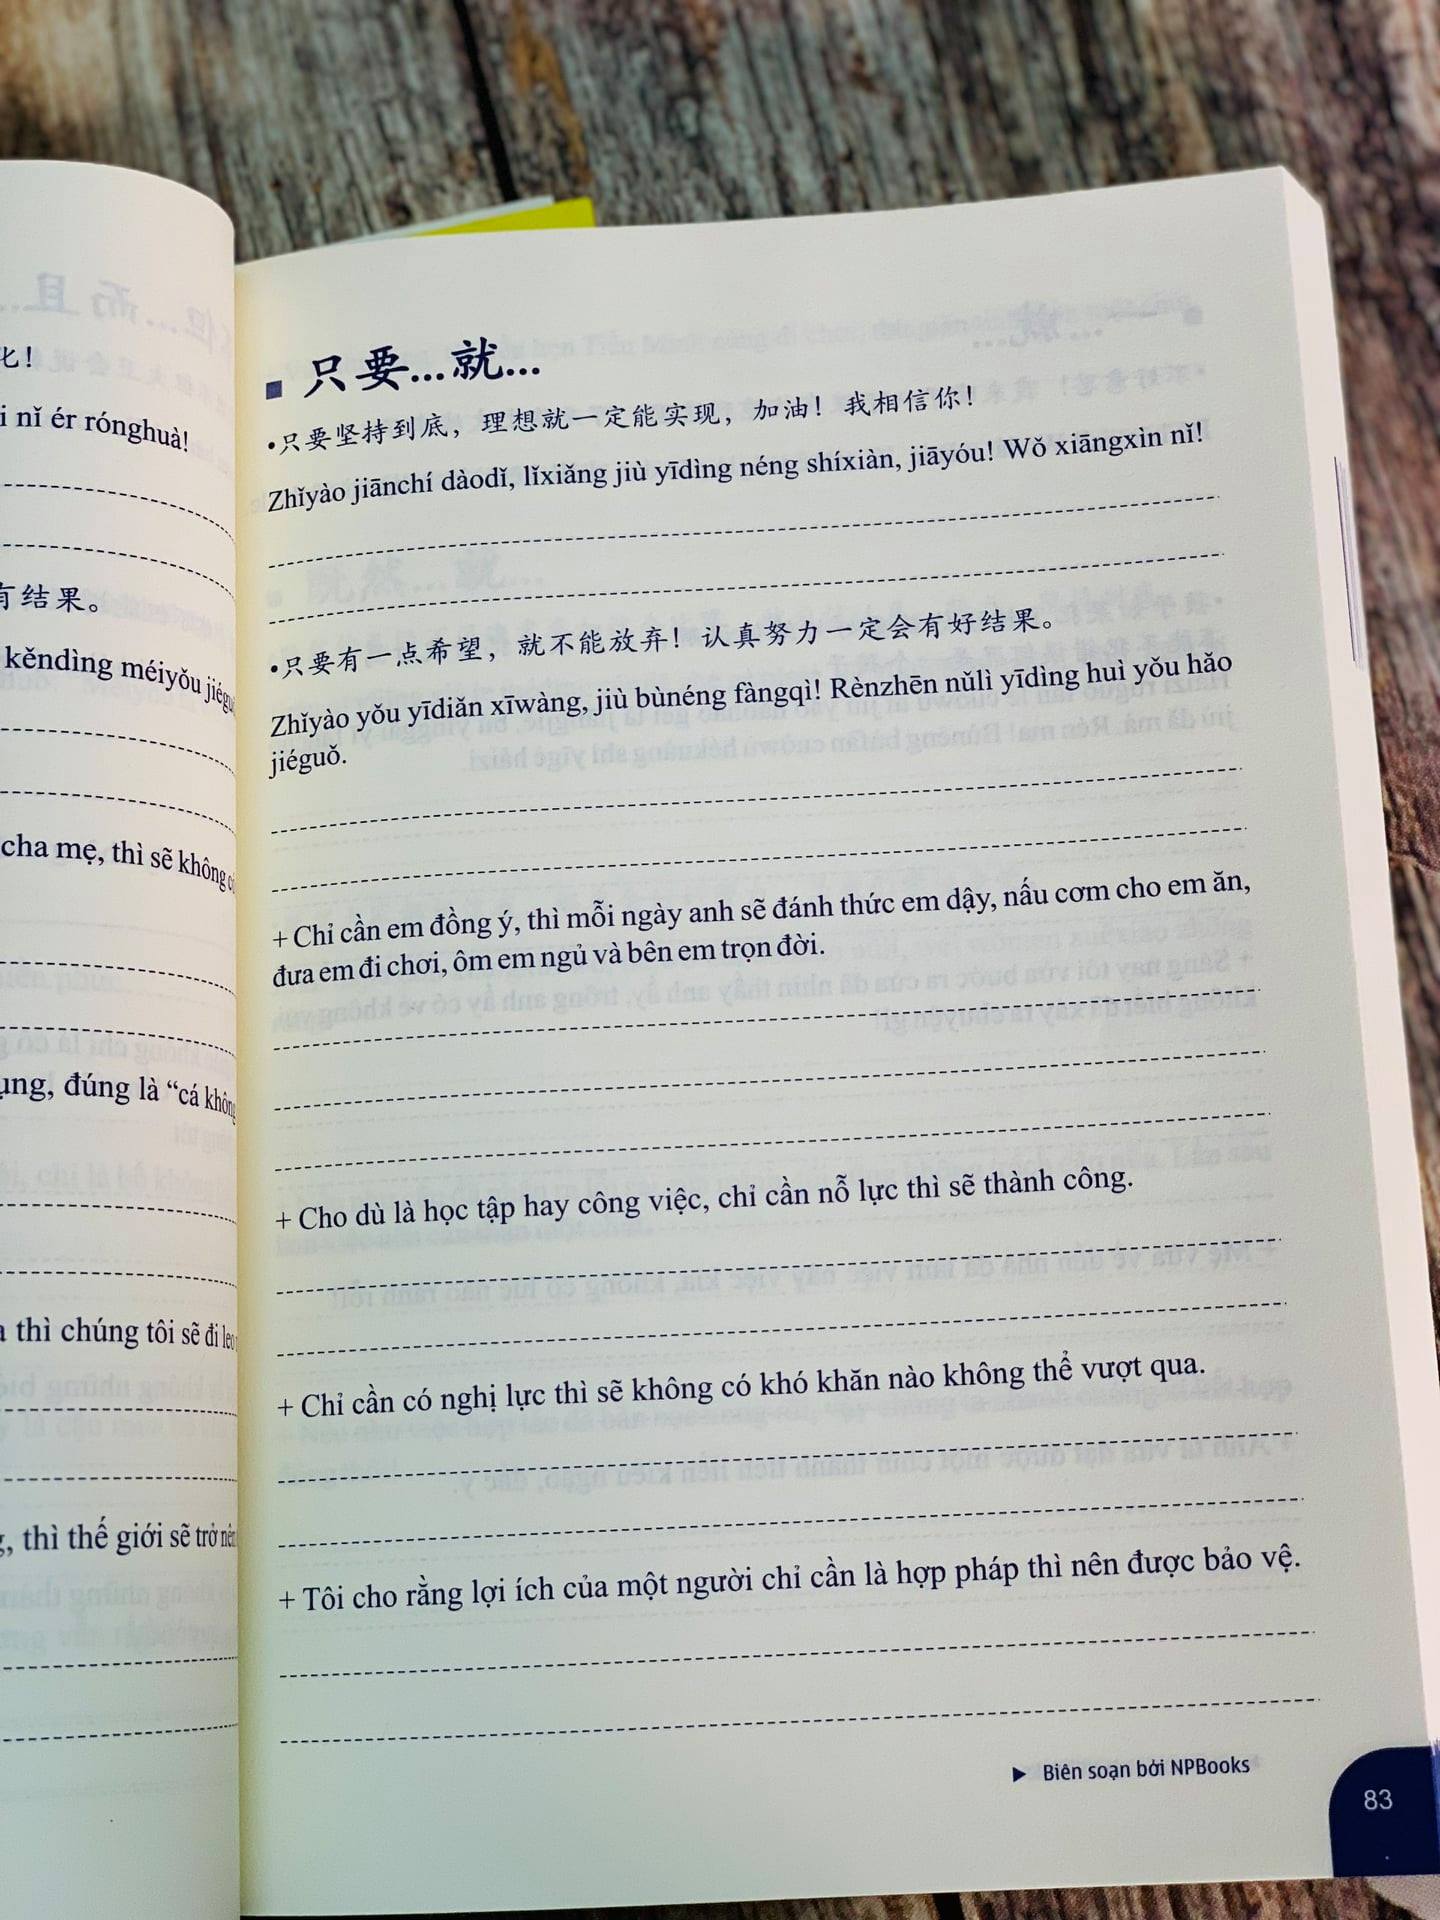 匕！
i nǐ ér rónghuà!
有结果。
kěndìng méiyǒu jiéguǒ
cha mẹ, thì sẽ không
ụng, đúng là “cá không
thì chúng tôi sẽ đi leo
, thì thế giới sẽ trở nên
只要...就...
•只要坚持到底，理想就一定能实现，加油！我相信你！
Zhǐyào jiānchí dàodǐ, lǐxiǎng jiù yīdìng néng shíxiàn, jiāyóu! Wǒ xiāngxìn nǐ!
•只要有一点希望，就不能放弃！认真努力一定会有好结果。
Zhǐyào yǒu yīdiǎn xīwàng, jiù bùnéng fàngqì! Rènzhēn nǔlì yīdìng huì yǒu hǎo
jiéguǒ.
+ Chỉ cần em đồng ý, thì mỗi ngày anh sẽ đánh thức em dậy, nấu cơm cho em ăn,
đưa em đi chơi, ôm em ngủ và bên em trọn đời.
+ Cho dù là học tập hay công việc, chỉ cần nỗ lực thì sẽ thành công.
+ Chỉ cần có nghị lực thì sẽ không có khó khăn nào không thể vượt qua.
+ Tôi cho rằng lợi ích của một người chỉ cần là hợp pháp thì nên được bảo vệ.
▶ Biên soạn bởi NPBooks
83